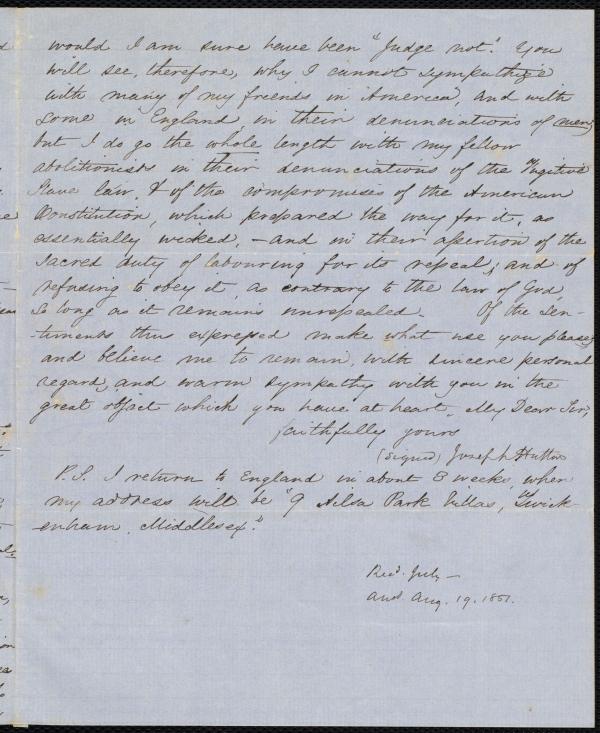 would I am sure have been "Judge not". You
will see, therefore, why I cannot sympathize
with many of my friends in America, and with
some in England, in their denunciations of men;
but I do go the whole length with my fellow
abolitionists in their denunciations of the Fugitive
Slave law, & of the compromises of the American
Constitution, which prepared the way for it, as
essentially wicked, – and in their assertion of the
sacred duty of labouring for its repeal; and of
refusing to obey it, as contrary to the law of God,
so long as it remains unrepealed. Of the sen-
timents thus expressed make what use you please;
and believe me to remain, with sincere personal
regard, and warm sympathy with you in the
great object which you have at heart, My Dear Sir,
faithfully yours
(signed) Joseph Hutton
P.S. I return to England in about 3 weeks, when
my address will be "9 Ailsa Park Villas, Twick-
enham, Middlesex."
Recd. July –
Ansd. Aug. 19. 1851.